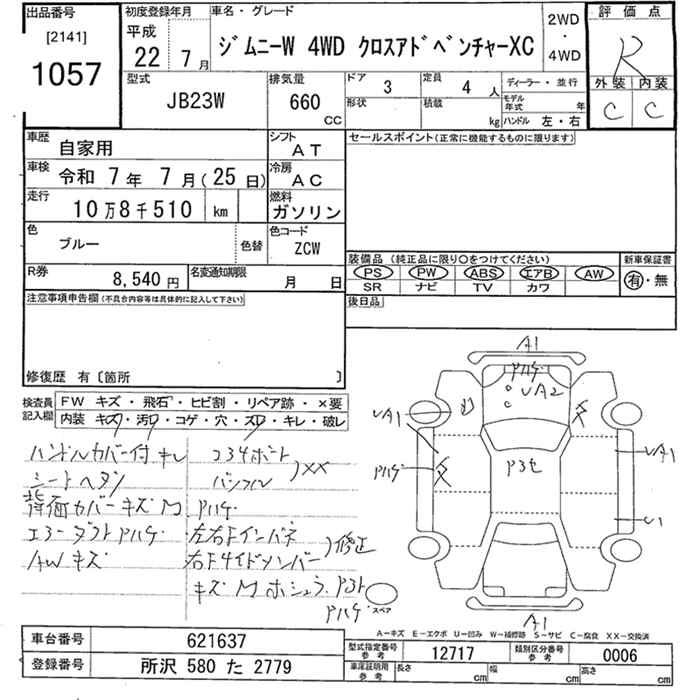 出品番号 初度登録年月 車名・グレード 評価点
[2141] 平成 2WD
1057 22年7月 ジムニーW 4WD クロスアドベンチャーXC ・4WD R
型式 排気量 ドア 3 定員 4 人 ディーラー・並行 外装 内装
JB23W 660 CC 形状 積載 kg モデル年式 年 C C
ハンドル 左・右
車歴 自家用 シフト AT セールスポイント(正常に機能するものに限ります)
車検 令和 7年 7月(25日) 冷房 AC
走行 10万8千510 km 燃料 ガソリン
色 ブルー 色替 色コード ZCW
装備品(純正品に限り○をつけてください) 新車保証書
R券 8,540円 名変通知期限 月 日 PS PW ABS エアB AW 有・無
SR ナビ TV カワ
注意事項申告欄(不具合内容等は具体的に記入して下さい) 後日品
修復歴 有〔箇所 〕
検査員記入欄 FW キズ・飛石・ヒビ割・リペア跡・×要
内装 キズ・汚・コゲ・穴・スレ・キレ・破レ
A1
Pハゲ
UA2
UA1
UA1
Pハゲ
U1
A1
ハンドルカバー付 キレ コアサポート
シートヘタリ ××
背面カバーキズM Pハゲ
エアーダクトPハゲ 左右Fインパネ
AWキズ 右Fサイドメンバー 修正
キズM
Pハゲ スペア
A-キズ E-エクボ U-凹み W-補修跡 S-サビ C-腐食 XX-交換済
車台番号 621637 型式指定番号 参考 12717 類別区分番号 参考 0006
登録番号 所沢 580 た 2779 車庫証明用 参考 長さ cm 幅 cm 高さ cm